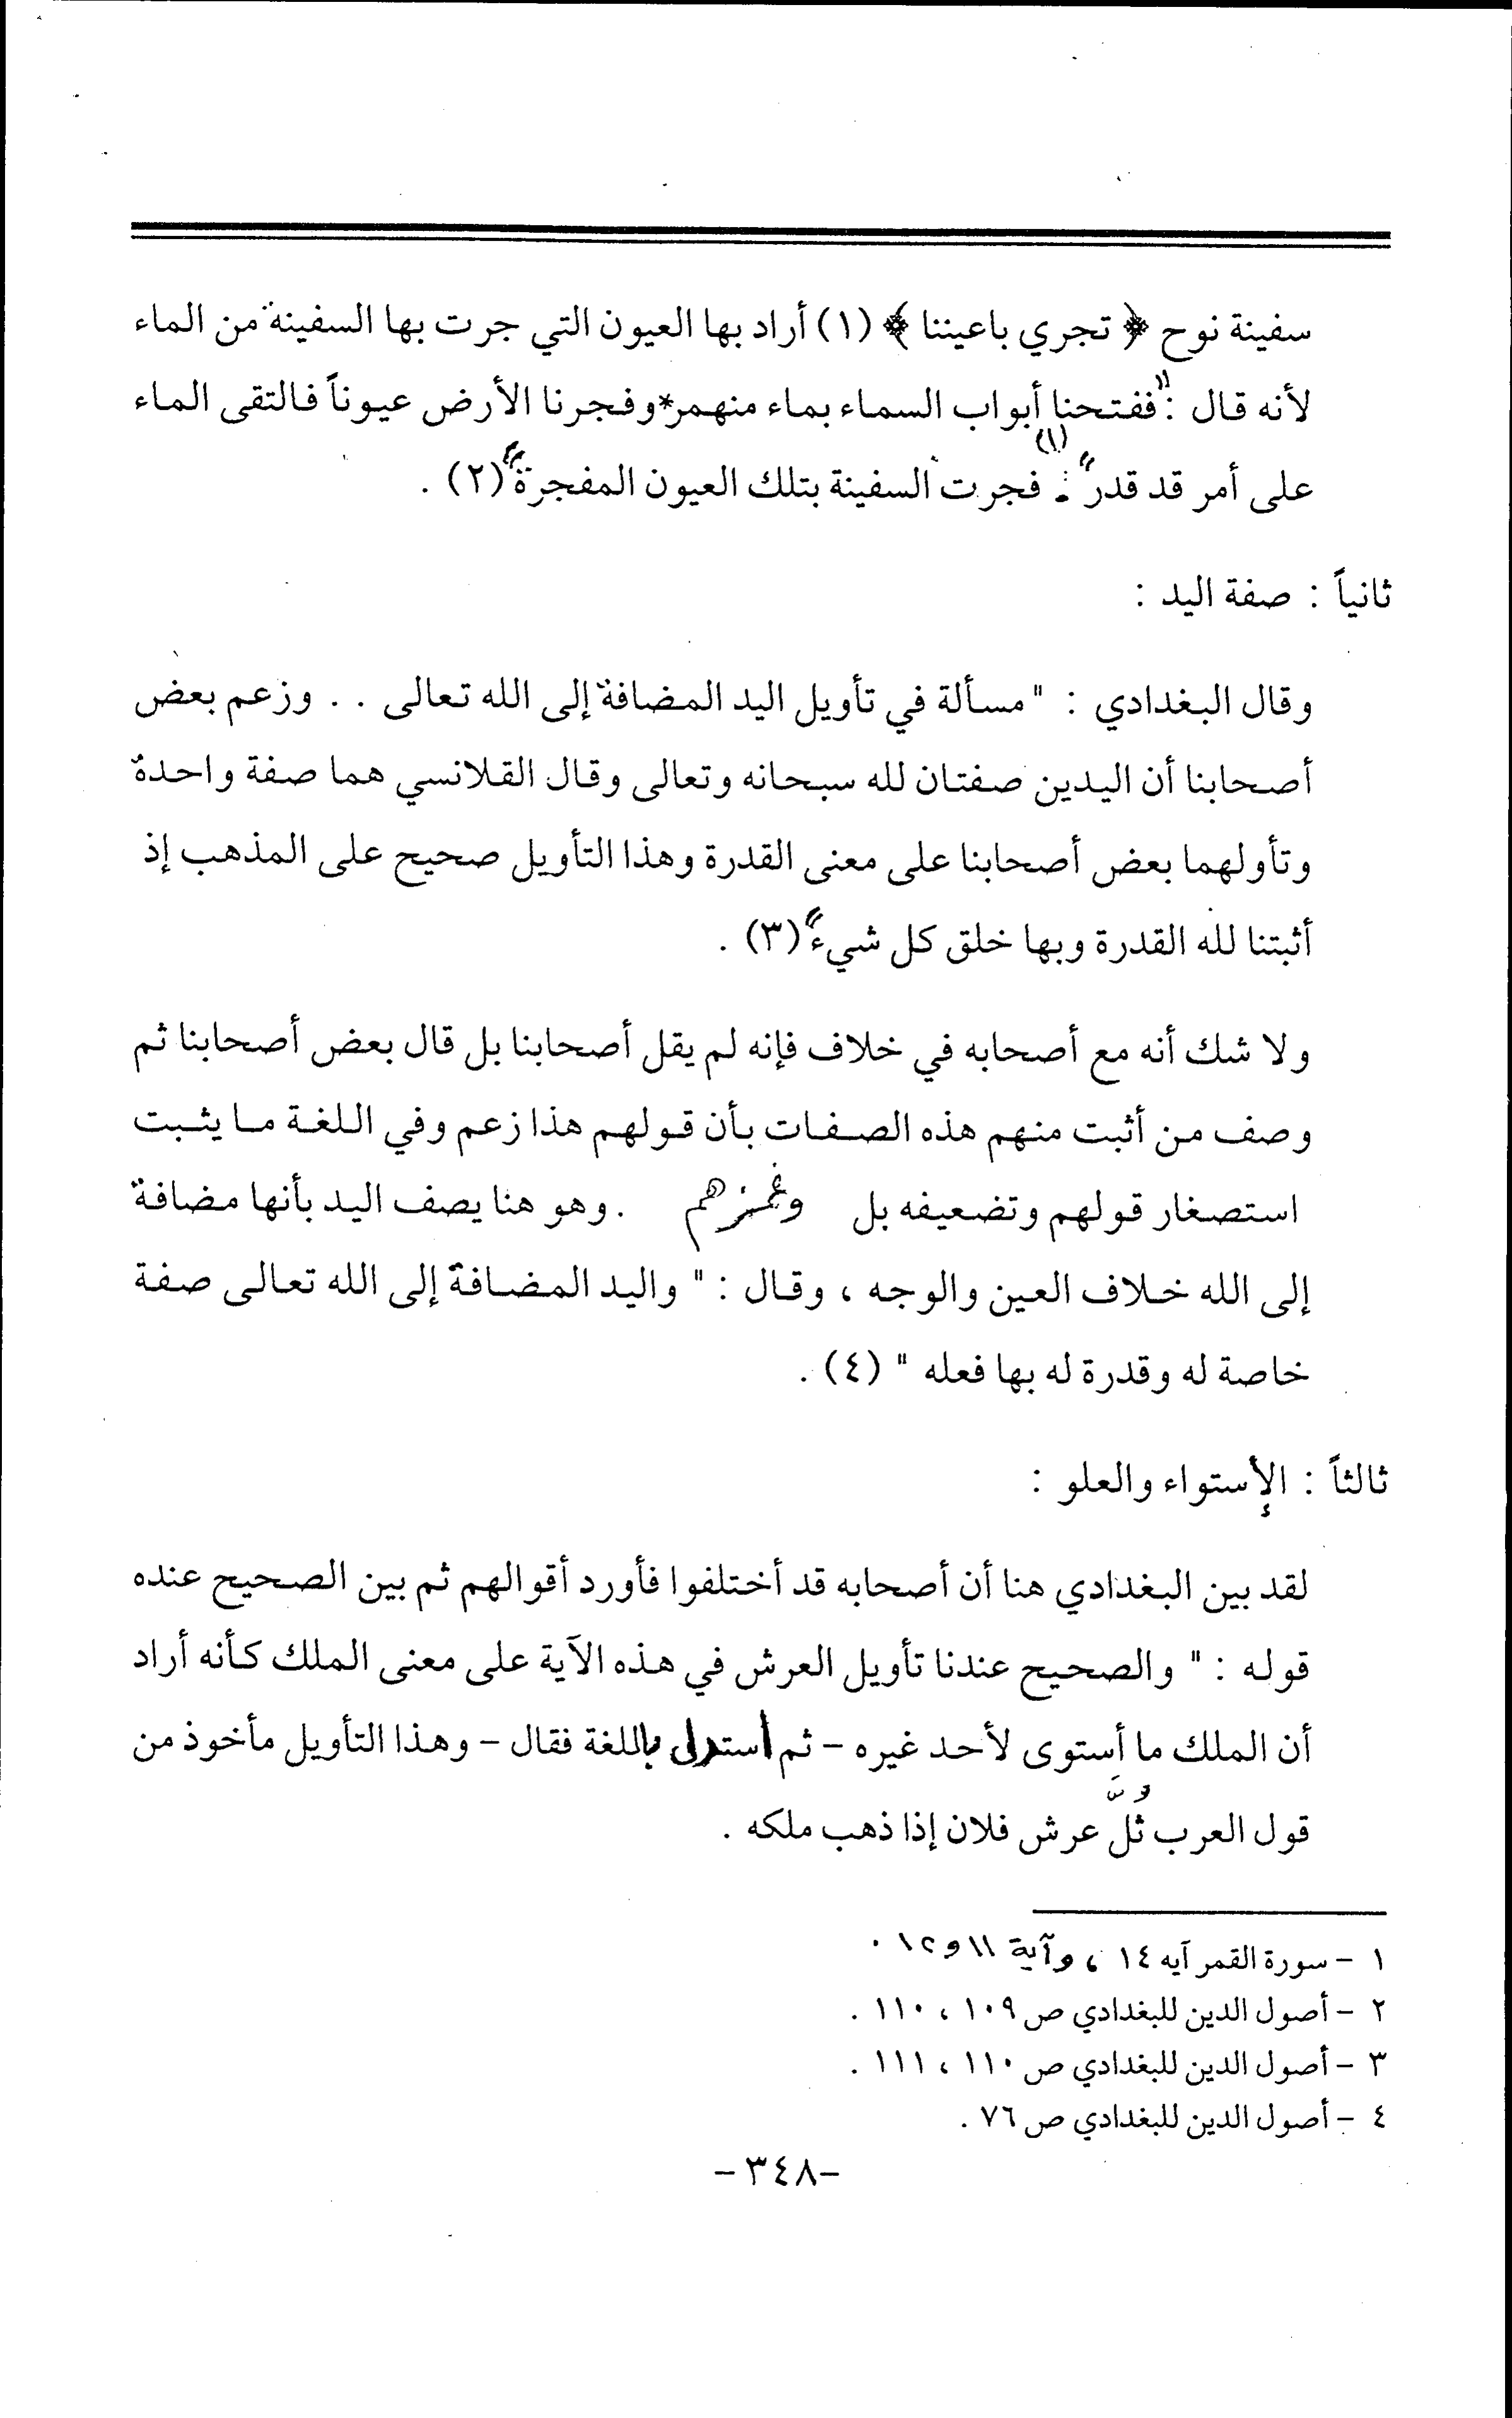 سفينة نوح ﴿ تجري باعيننا ﴾ (١) أراد بها العيون التي جرت بها السفينة من الماء
لأنه قال : " ففتحنا أبواب السماء بماء منهمر*وفجرنا الأرض عيوناً فالتقى الماء
على أمر قد قدر " (١) . فجرت السفينة بتلك العيون المفجرة " (٢) .
ثانياً : صفة اليد :
وقال البغدادي : " مسألة في تأويل اليد المضافة إلى الله تعالى . . وزعم بعض
أصحابنا أن اليدين صفتان لله سبحانه وتعالى وقال القلانسي هما صفة واحدة
وتأولهما بعض أصحابنا على معنى القدرة وهذا التأويل صحيح على المذهب إذ
أثبتنا لله القدرة وبها خلق كل شيء " (٣) .
ولا شك أنه مع أصحابه في خلاف فإنه لم يقل أصحابنا بل قال بعض أصحابنا ثم
وصف من أثبت منهم هذه الصفات بأن قولهم هذا زعم وفي اللغة ما يثبت
استصغار قولهم وتضعيفه بل وغمزهم . وهو هنا يصف اليد بأنها مضافة
إلى الله خلاف العين والوجه ، وقال : " واليد المضافة إلى الله تعالى صفة
خاصة له وقدرة له بها فعله " (٤) .
ثالثاً : الإستواء والعلو :
لقد بين البغدادي هنا أن أصحابه قد أختلفوا فأورد أقوالهم ثم بين الصحيح عنده
قوله : " والصحيح عندنا تأويل العرش في هذه الآية على معنى الملك كأنه أراد
أن الملك ما أستوى لأحد غيره – ثم أستدل باللغة فقال – وهذا التأويل مأخوذ من
قول العرب ثُلَّ عرش فلان إذا ذهب ملكه .
١ – سورة القمر آيه ١٤ ، وآية ١١ و ١٢ .
٢ – أصول الدين للبغدادي ص ١٠٩ ، ١١٠ .
٣ – أصول الدين للبغدادي ص ١١٠ ، ١١١ .
٤ – أصول الدين للبغدادي ص ٧٦ .
–٣٤٨–